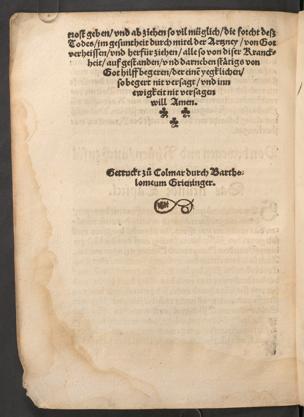 trost geben/vnd abziehen so vil müglich/die forcht deß
Todes/im gesuntheit durch mitel der Artzney/von Got
verheissen/vnd herfür ziehen/alle so von diser Kranck-
heit/auff gestanden/vnd darneben stätigs von
Got hilff begeren/der eine͂ yegklichen/
so begert nit versagt/vnd inn
ewigkeit nit versagen
will Amen.
Getruckt zů Colmar durch Bartho-
lomeum Grieninger.